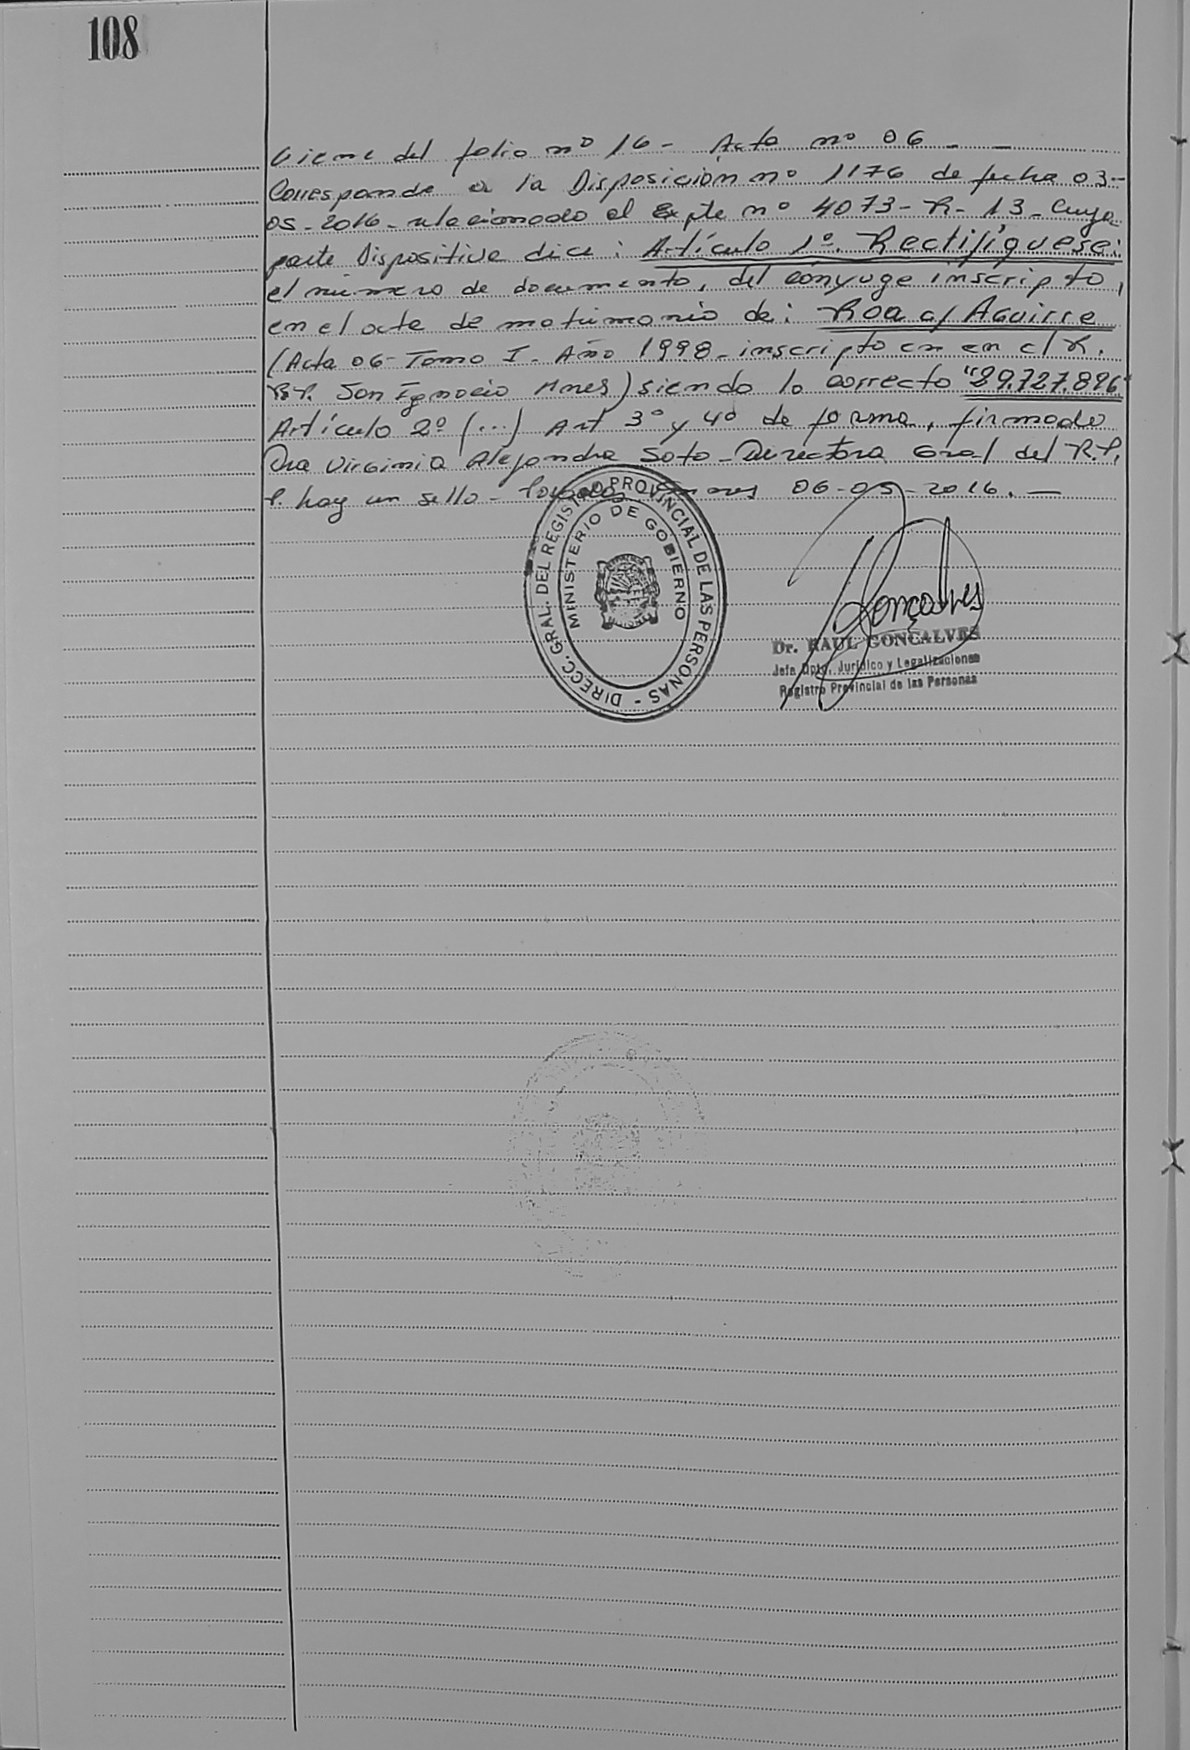 108
Viene del folio nº 16 - Acta nº 06 - -
Corresponde a la Disposición nº 1176 de fecha 03-
05-2016 - relacionado al Expte nº 4073-R-13- Cuya
parte Dispositiva dice: Artículo 1º. Rectifíquese:
el número de documento, del cónyuge inscripto,
en el acta de matrimonio de: Roa c/ Aguirre
(Acta 06- Tomo I- Año 1998- inscripto en en el R.
San Ignacio Mnes) siendo lo correcto "29.727.896"
Artículo 2º (...) Art 3º y 4º de forma, firmado
Dra Virginia Alejandra Soto - Directora Gral del R.P.
P. hay un sello - Posadas Mnes 06-05-2016. -
DIRECC. GRAL. DEL REGISTRO PROVINCIAL DE LAS PERSONAS -
MINISTERIO DE GOBIERNO
Goncalves
Dr. RAUL GONCALVES
Jefe Dpto. Jurídico y Legalizaciones
Registro Provincial de las Personas